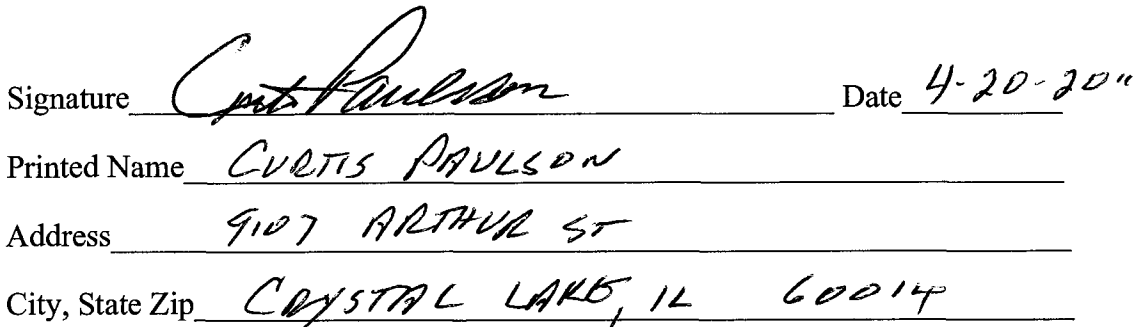 Signature Curtis Paulson Date 4-20-2011
Printed Name CURTIS PAULSON
Address 9107 ARTHUR ST
City, State Zip CRYSTAL LAKE, IL 60014